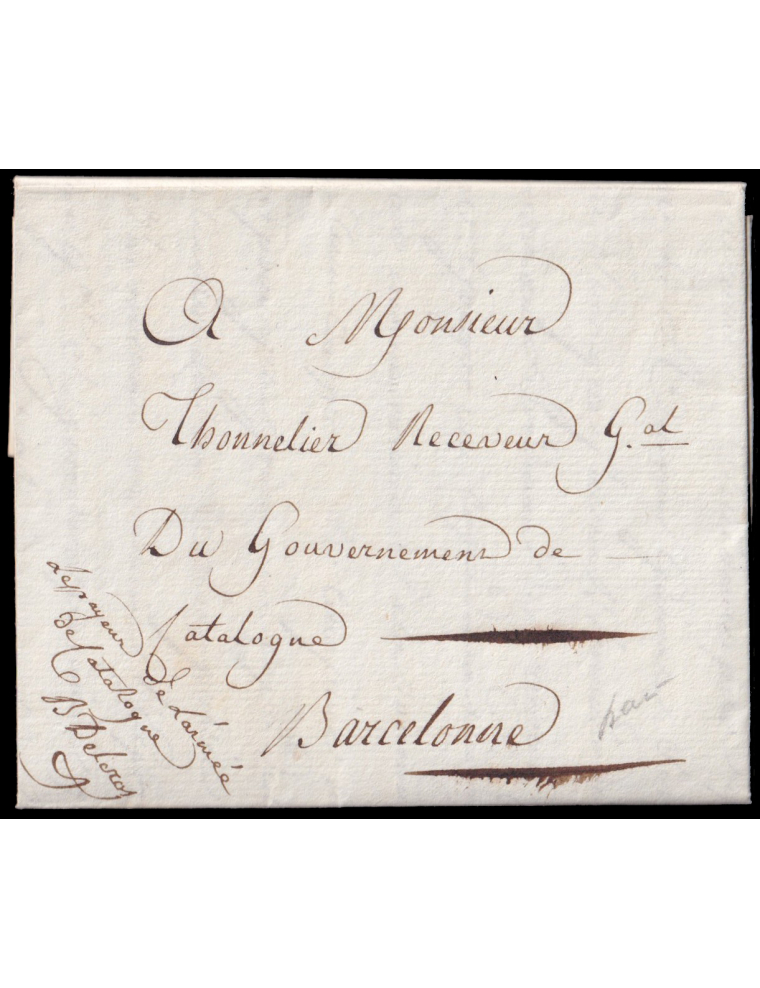 A Monsieur
Thonnelier Receveur G.al
Du Gouvernement de
Catalogue
Barcelonne
le payeur de l'armée
de Catalogue
B Delcros